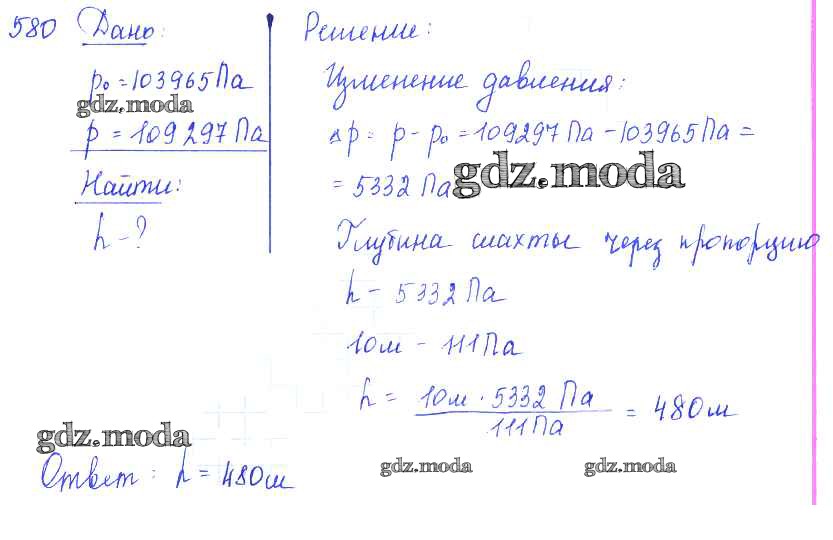 580 Дано:
p₀ = 103965 Па
gdz.moda
p = 109297 Па
Найти:
h - ?
Решение:
Изменение давления:
Δp = p - p₀ = 109297 Па - 103965 Па =
= 5332 Па
gdz.moda
Глубина шахты через пропорцию
h - 5332 Па
10м - 111 Па
h = 10м · 5332 Па / 111 Па = 480 м
gdz.moda
Ответ: h = 480м
gdz.moda
gdz.moda